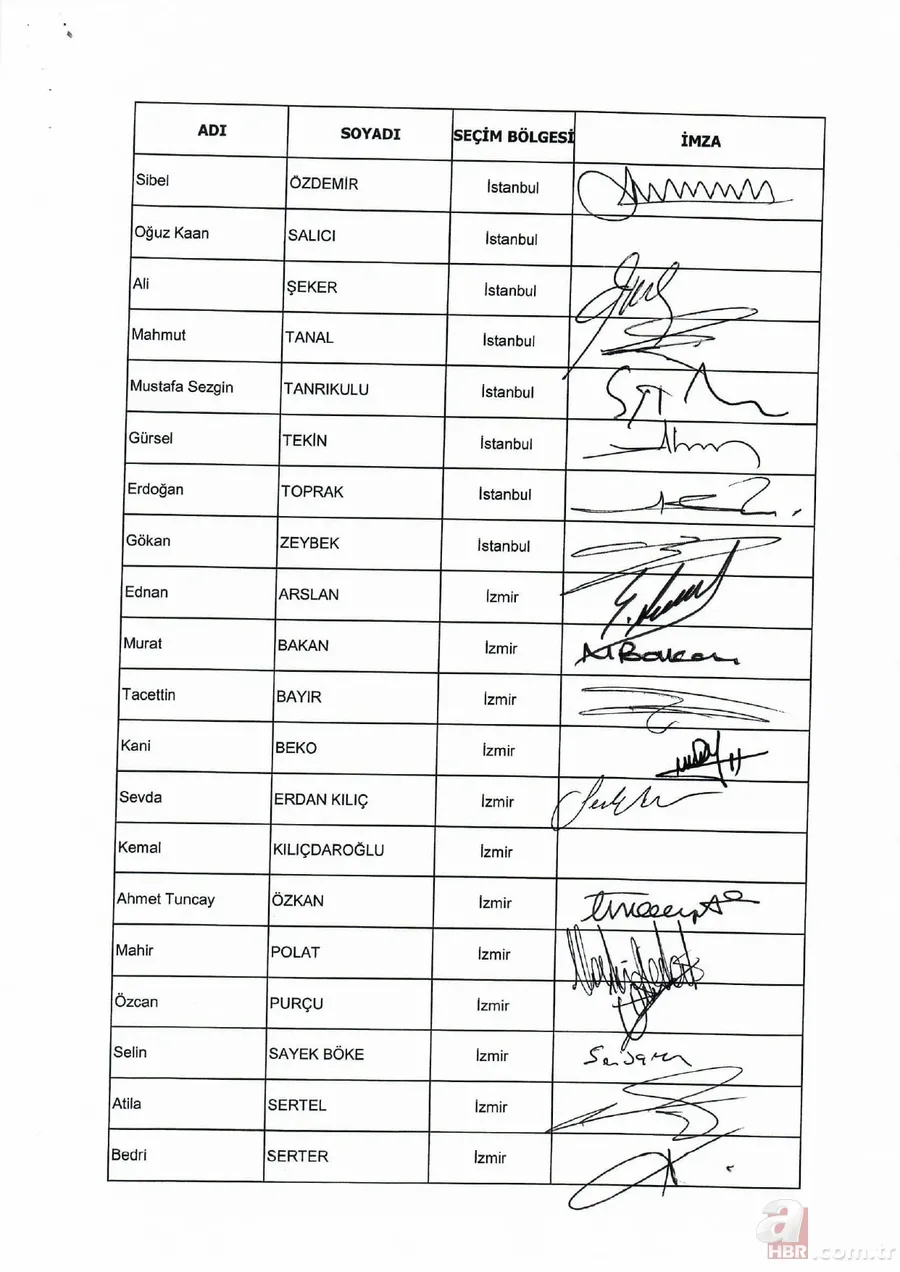 ADI SOYADI SEÇİM BÖLGESİ İMZA
Sibel ÖZDEMİR İstanbul
Oğuz Kaan SALICI İstanbul
Ali ŞEKER İstanbul
Mahmut TANAL İstanbul
Mustafa Sezgin TANRIKULU İstanbul
Gürsel TEKİN İstanbul
Erdoğan TOPRAK İstanbul
Gökan ZEYBEK İstanbul
Ednan ARSLAN İzmir
Murat BAKAN İzmir M Bakan
Tacettin BAYIR İzmir
Kani BEKO İzmir
Sevda ERDAN KILIÇ İzmir
Kemal KILIÇDAROĞLU İzmir
Ahmet Tuncay ÖZKAN İzmir
Mahir POLAT İzmir
Özcan PURÇU İzmir
Selin SAYEK BÖKE İzmir
Atila SERTEL İzmir
Bedri SERTER İzmir
a
HBR.com.tr